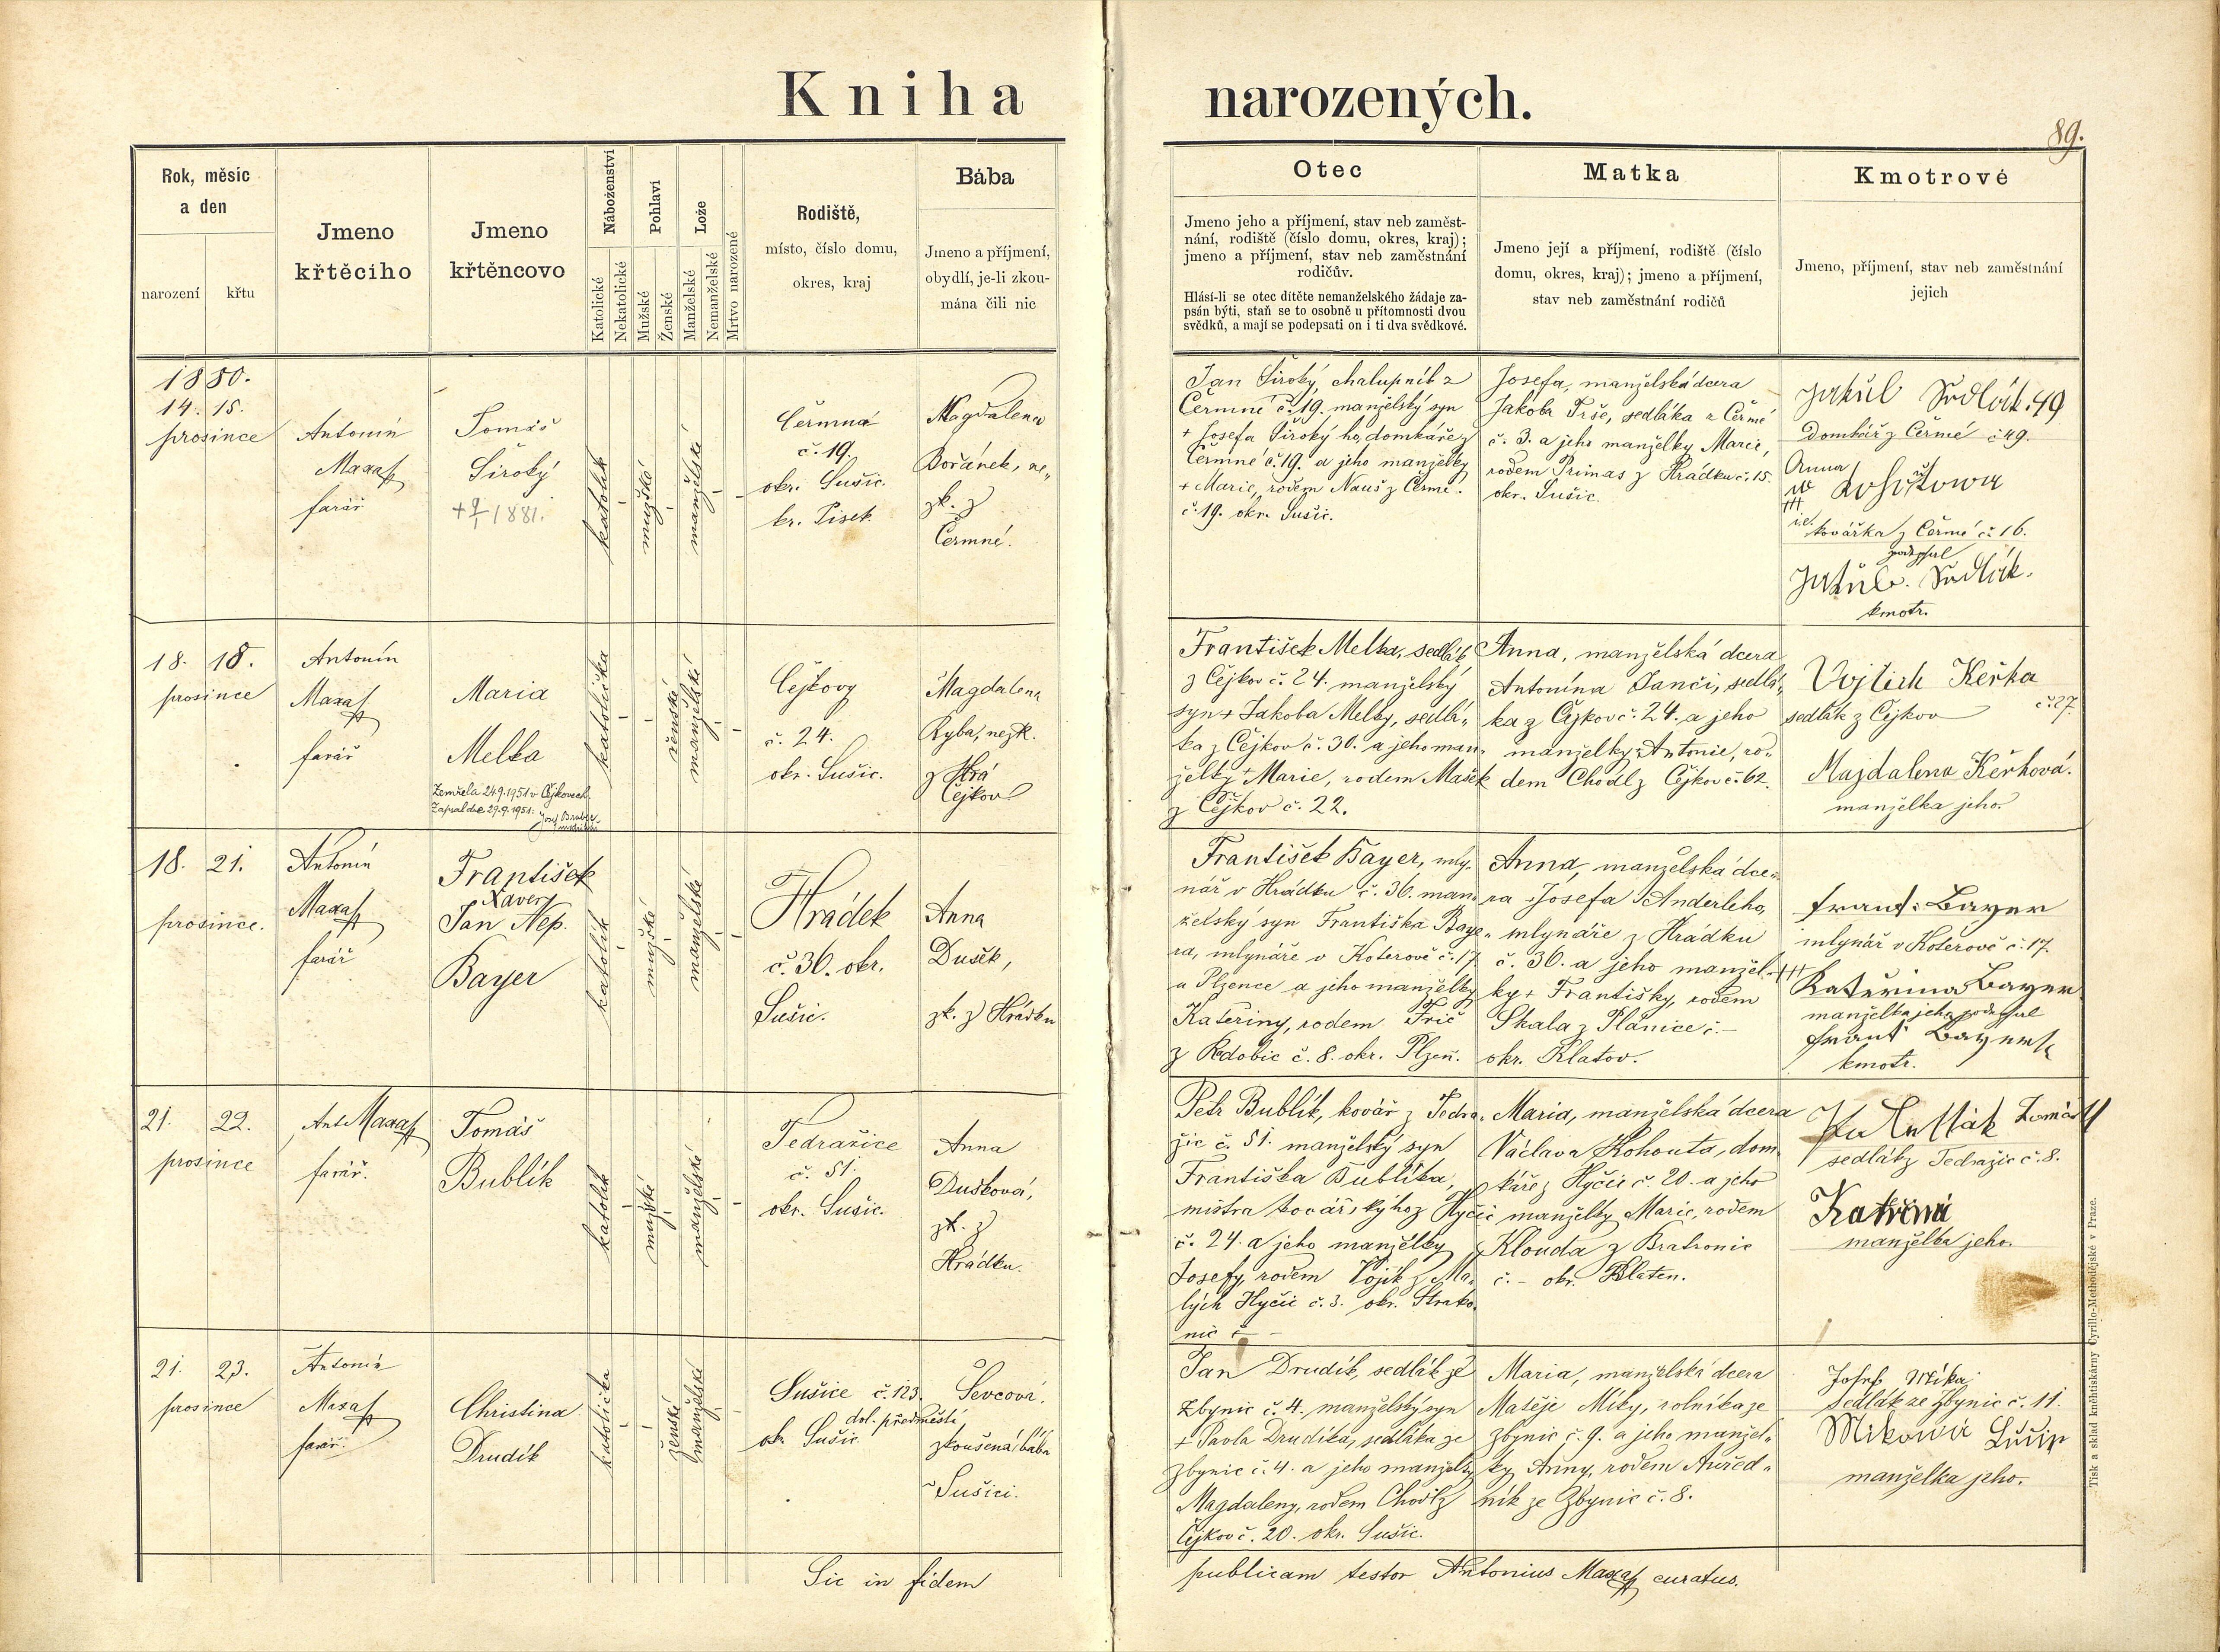 Kniha narozených.
89.
Rok, měsíc
a den
narození
křtu
Jmeno
křtěcího
Jmeno
křtěncovo
Náboženství
Katolické
Nekatolické
Pohlaví
Mužské
Ženské
Lože
Manželské
Nemanželské
Mrtvo narozené
Rodiště,
místo, číslo domu,
okres, kraj
Bába
Jmeno a příjmení,
obydlí, je-li zkou-
mána čili nic
Otec
Jmeno jeho a příjmení, stav neb zaměst-
nání, rodiště (číslo domu, okres, kraj);
jmeno a příjmení, stav neb zaměstnání
rodičův.
Hlásí-li se otec dítěte nemanželského žádaje za-
psán býti, staň se to osobně u přítomnosti dvou
svědků, a mají se podepsati on i ti dva svědkové.
Matka
Jmeno její a příjmení, rodiště (číslo
domu, okres, kraj); jmeno a příjmení,
stav neb zaměstnání rodičů
Kmotrové
Jmeno, příjmení, stav neb zaměstnání
jejich
1880.
14. 15.
prosince
Antonín
Maxa
farář
Tomáš
Široký
+ 9/1 1881.
katolík
mužské
manželské
Čermná
č. 19.
okr. Sušic.
kr. Písek.
Magdalena
Bořánek, ne„
zk. z
Čermné.
Jan Široký, chalupník z
Čermné č. 19. manželský syn
+ Josefa Široký ho, domkáře z
Čermné č. 19. a jeho manželky
+ Marie, rodem Nauš z Čermé.
č. 19. okr. Sušic.
Josefa, manželská dcera
Jakoba Trše, sedláka z Čermé
č. 3. a jeho manželky Marie,
rodem Primas z Hrádku č. 15.
okr. Sušic.
Jakub Sedlák. 49
Domkář z Čermé č 49.
Anna
+++
kovářka z Čermé č. 16.
podepsal
Jakub. Sedlák.
kmotr.
18. 18.
prosince
Antonín
Maxa
farář
Maria
Melka
Zemřela 24.9.1951 v Čejkovech.
Zapsal dne 29.9.1951.
katolička
ženské
manželské
Čejkovy
č. 24.
okr. Sušic.
Magdalena
Ryba, nezk.
z Hrá
Čejkov
František Melka, sedlák
z Čejkov č. 24. manželský
syn + Jakoba Melky, sedlá„
ka z Čejkov č. 30. a jeho man„
želky + Marie, rodem Mašek
z Čejkov č. 22.
Anna, manželská dcera
Antonína Janči, sedlá„
ka z Čejkov č. 24. a jeho
manželky + Antonie, ro„
dem Chodl z Čejkov č. 62.
Vojtěch Keřka
sedlák z Čejkov č. 27.
Majdalena Keřková.
manželka jeho.
18. 21.
prosince.
Antonín
Maxa
farář
František
Xaver
Jan Nep.
Bayer
katolík
mužské
manželské
Hrádek
č. 36. okr.
Sušic.
Anna
Dušek,
zk. z Hrádku
František Bayer, mly„
nář v Hrádku č. 36. man„
želský syn Františka Baye„
ra, mlynáře v Koterově č. 17.
u Plzence a jeho manželky
Kateřiny, rodem Frič
z Radobic č. 8. okr. Plzeň.
Anna, manželská dce„
ra Josefa Anderleho,
mlynáře z Hrádku
č. 36. a jeho manžel„
ky + Františky, rodem
Skala z Plánice č. –
okr. Klatov.
Frant. Bayer
mlynář v Koterově č. 17.
+++
Kateřina Bayer
manželka jeho podepsal
Frant Bayer
kmotr.
21. 22.
prosince
Ant Maxa
farář.
Tomáš
Bublík
katolík
mužské
manželské
Tedražice
č. 51.
okr. Sušic.
Anna
Dušková,
zk. z
Hrádku.
Petr Bublík, kovář z Tedra„
žic č. 51. manželský syn
Františka Bublíka,
mistra kovářskýho z Hyčic
č. 24. a jeho manželky
Josefy, rodem Vojík z Ma„
lých Hyčic č. 3. okr. Strako„
nic č –
Maria, manželská dcera
Václava Kohouta, dom„
káře z Hyčic č. 20. a jeho
manželky Marie, rodem
Klouda z Bratronic
č. – okr. Blaten.
Tomáš
sedlák z Tedražic č. 8.
Katřena
manželka jeho.
21. 23.
prosince
Antonín
Maxa
farář.
Christina
Drudík
katolička
ženské
manželské
Sušice č. 123.
dol. předměstí,
ok. Sušic.
Ševcová.
zkoušená bába
v Sušici.
Jan Drudík, sedlák ze
Zbynic č. 4. manželský syn
+ Pavla Drudíka, sedláka ze
Zbynic č. 4. a jeho manželky
Magdaleny, rodem Chodl z
Čejkov č. 20. okr. Sušic.
Maria, manželská dcera
Matěje Míky, rolníka ze
Zbynic č. 9. a jeho manžel„
ky Anny, rodem Auřed„
ník ze Zbynic č. 8.
Josef Míka
sedlák ze Zbynic č. 11.
Mikowá
manželka jeho.
Sic in fidem publicam testor Antonius Maxa curatus.
Tisk a sklad knihtiskárny Cyrillo-Methodějské v Praze.